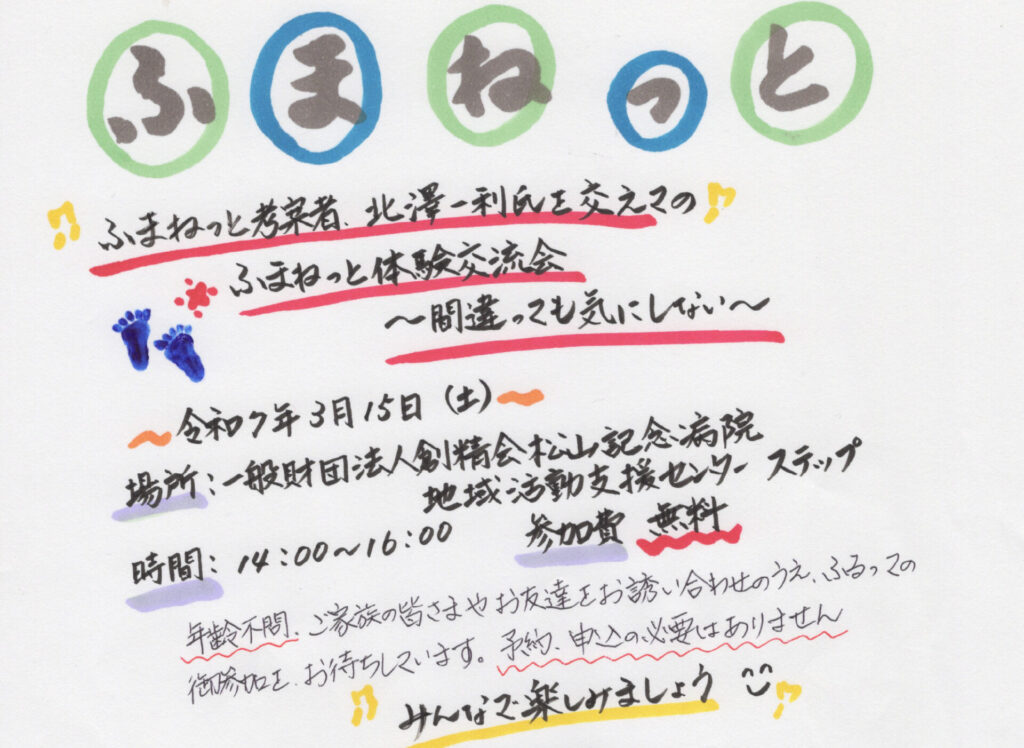 ふまねっと
ふまねっと考案者、北澤一利氏を交えての
ふまねっと体験交流会
～間違っても気にしない～
～令和7年3月15日（土）～
場所：一般財団法人創精会松山記念病院
地域活動支援センター ステップ
時間：14：00～16：00 参加費 無料
年齢不問、ご家族の皆さまやお友達をお誘い合わせのうえ、ふるっての
御参加を、お待ちしています。予約、申込の必要はありません
みんなで楽しみましょう